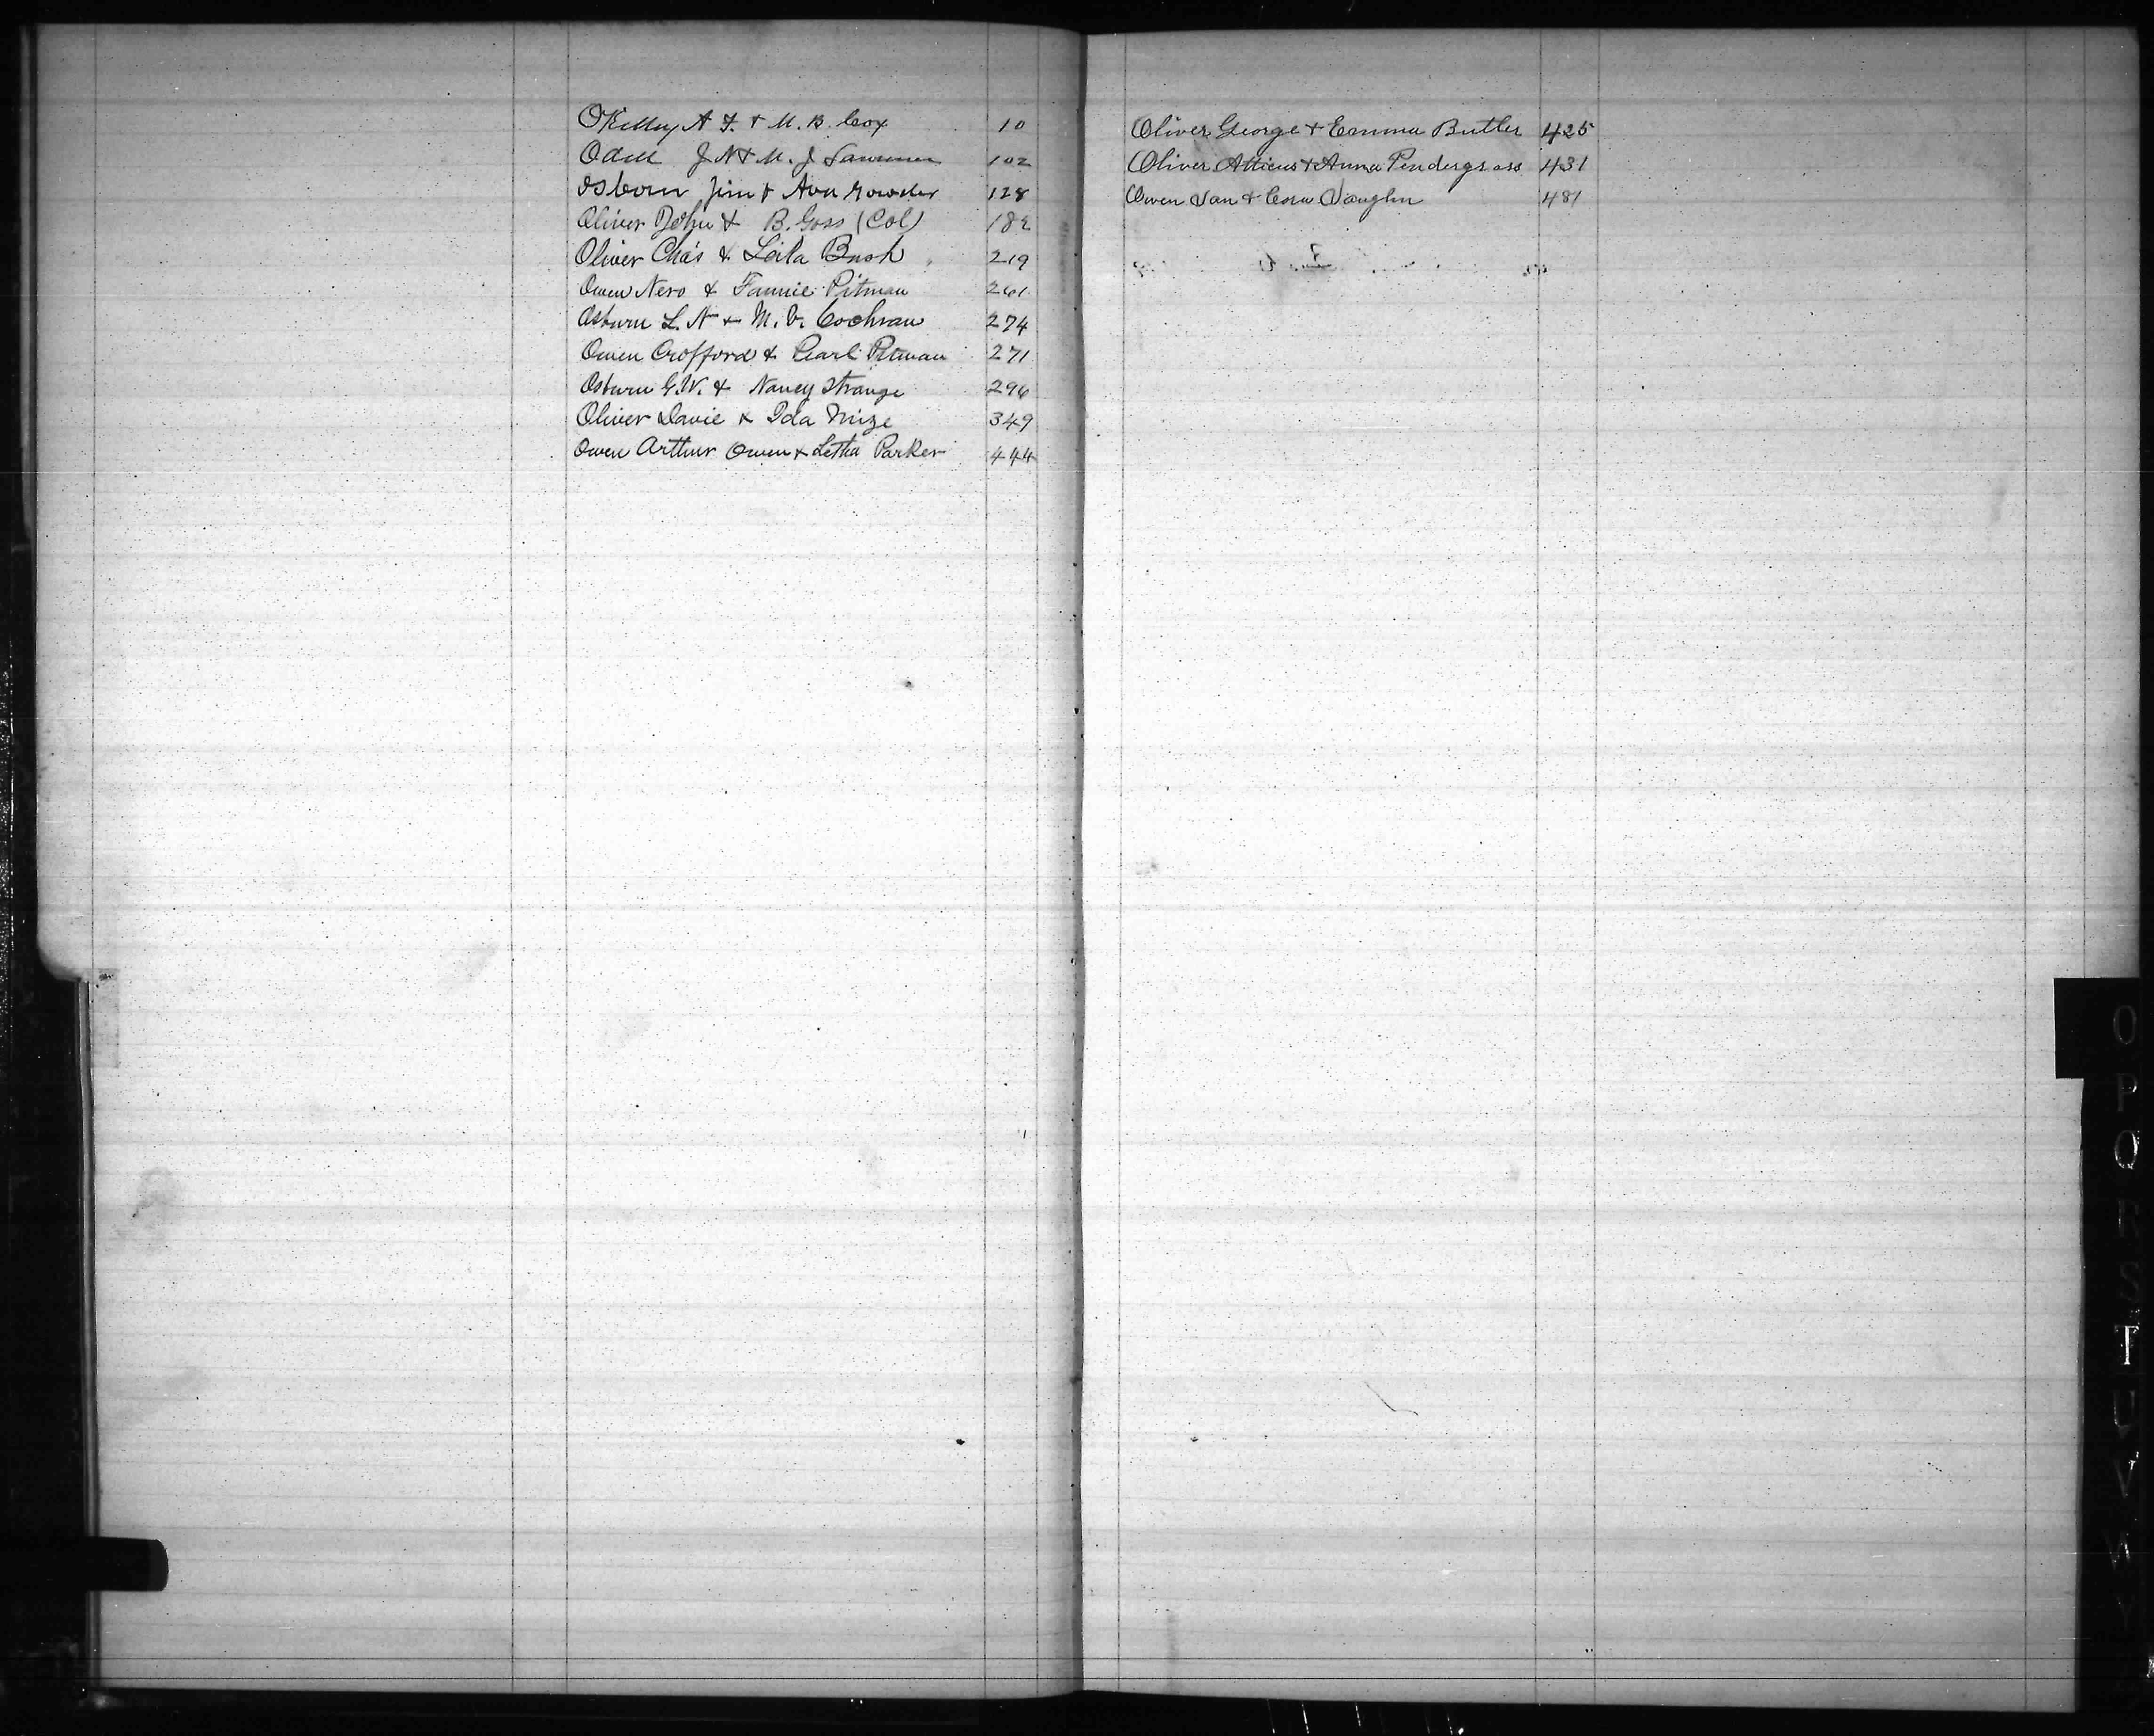 OKelley A F. & M. B. Cox 10
Odell J N & M. J 102
Osborn Jim & Ava Gowder 128
Oliver John & B. Goss (Col) 182
Oliver Chas & Leila Bush 219
Owen Nero & Fannie Pitman 261
Osburn L. N & M. V. Cochran 274
Owen Crofford & Pearl Pitman 271
Osburn G.W. & Nancy Strange 296
Oliver Davie & Ida Mize 349
Owen Arthur Owen & Letha Parker 444
Oliver George & Emma Butler 425
Oliver Atticus & Anna Pendergrass 431
Owen Van & Cora Vaughn 481
O
P
Q
R
S
T
U
V
W
Y